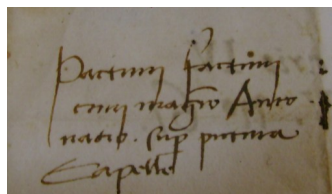 Pactum factum
cum magro Anto
natio. sup pictura
Capelle